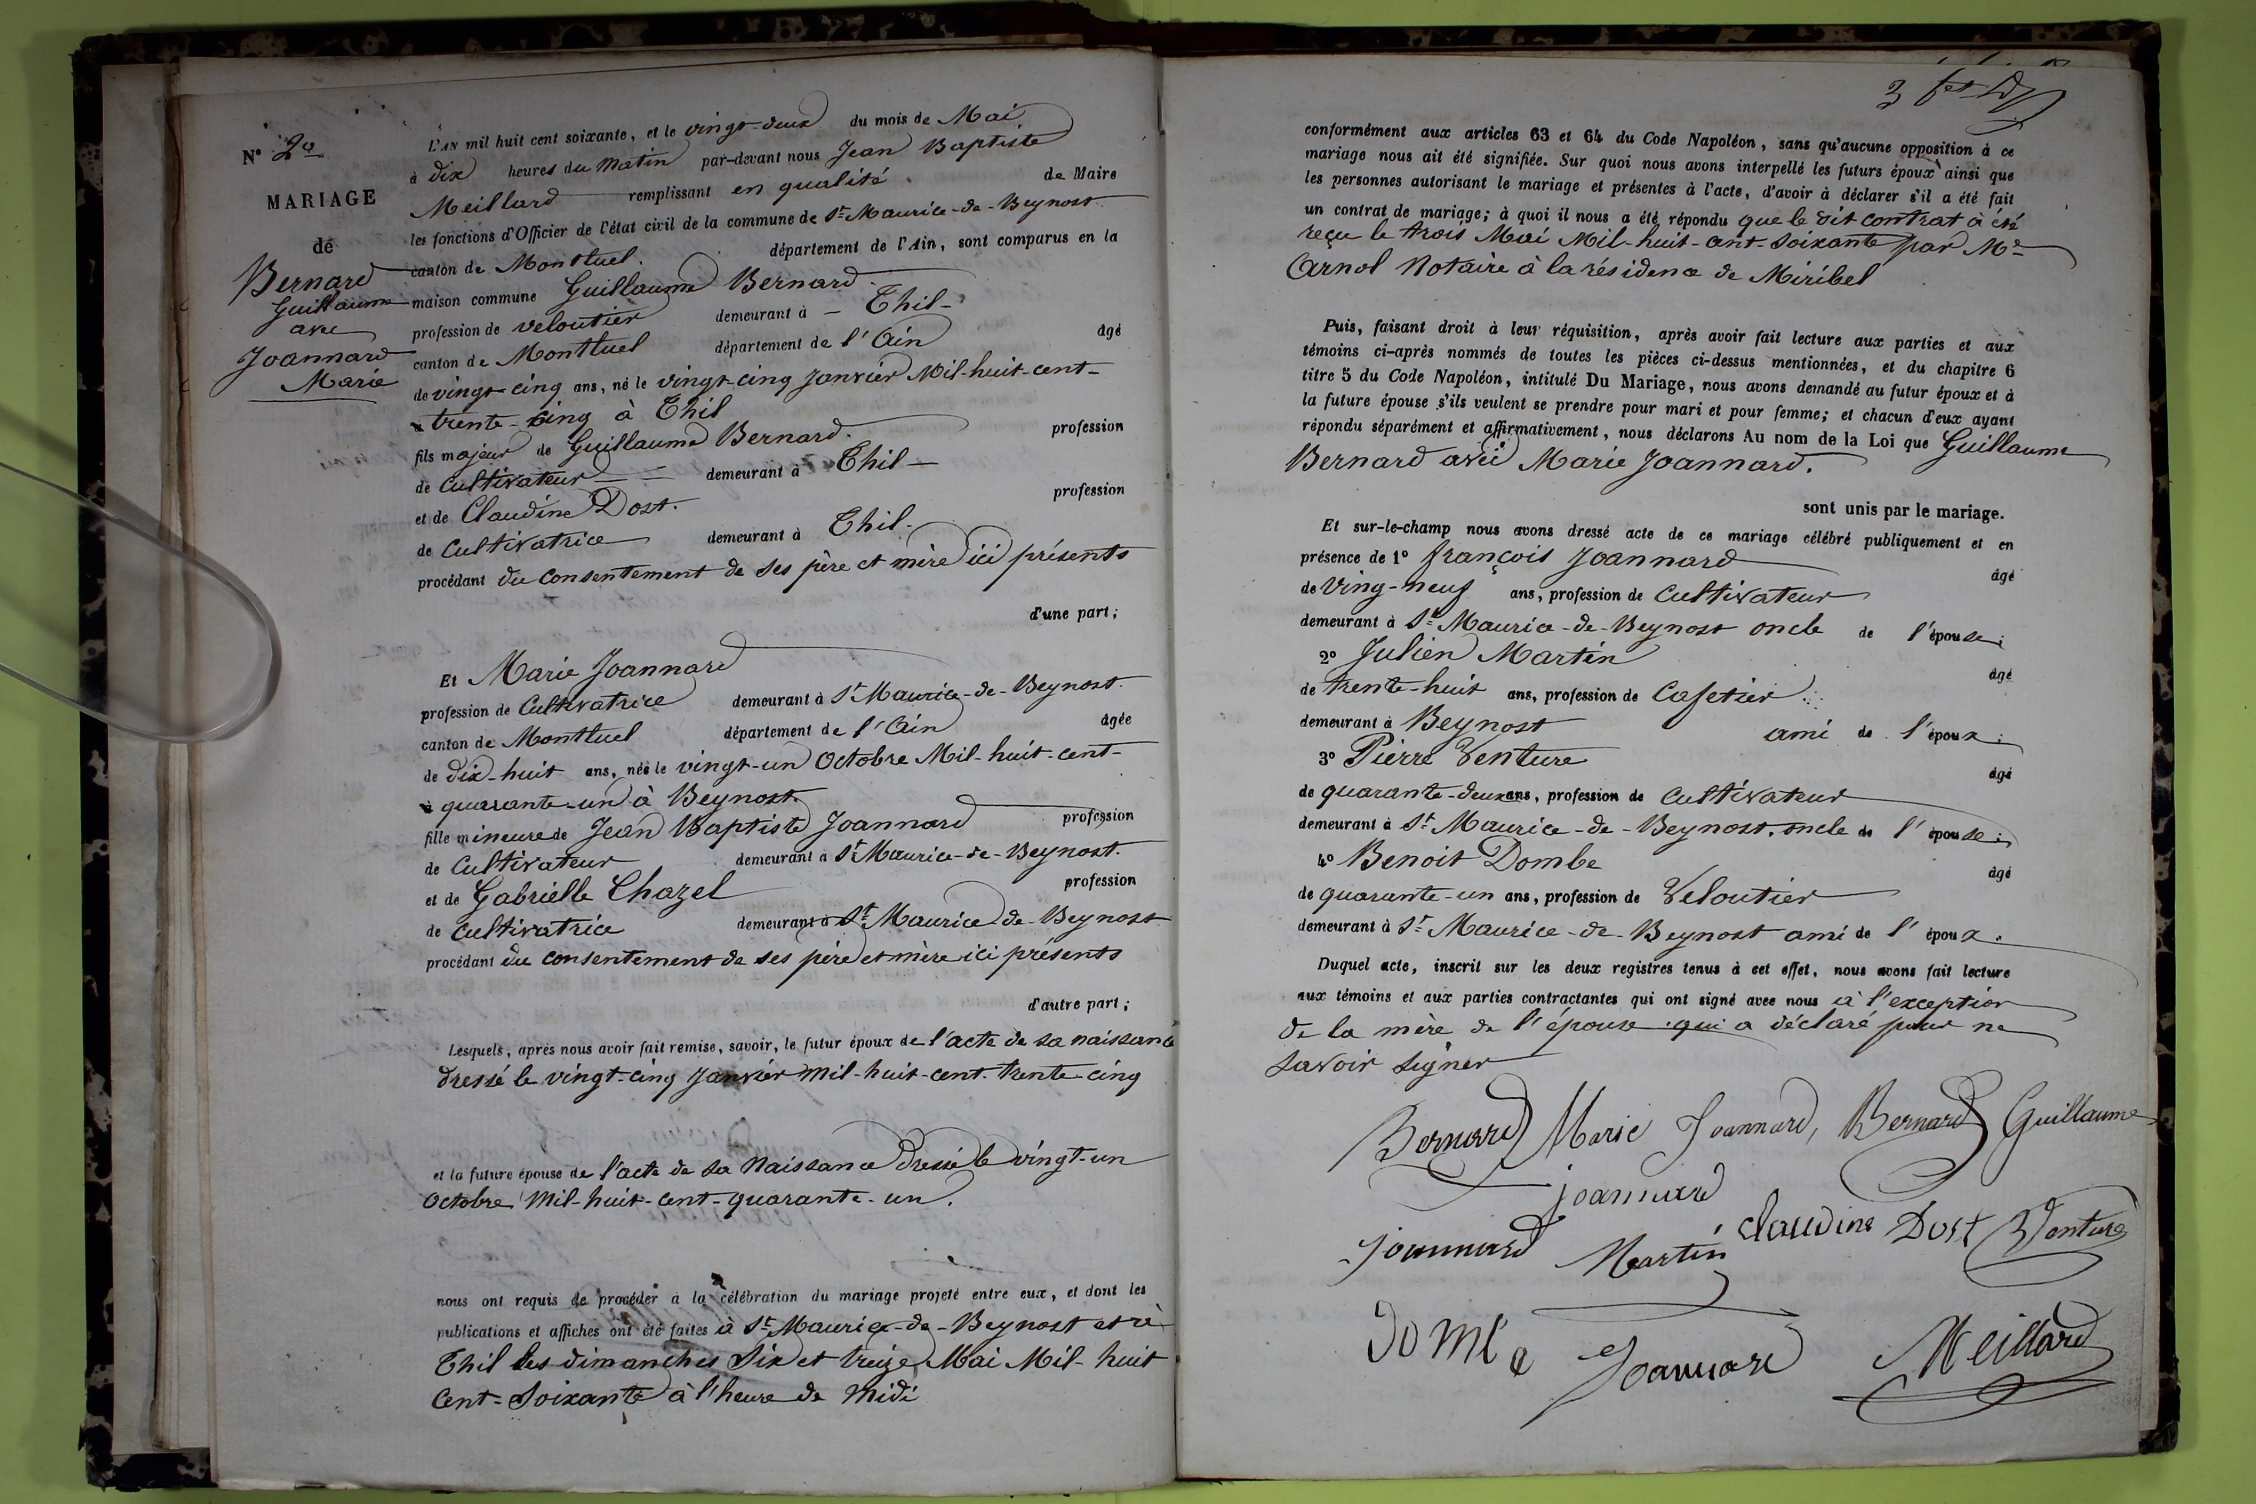 N° 2e
MARIAGE
de
Bernard
Guillaume
avec
Joannard
Marie
L'AN mil huit cent soixante, et le vingt-deux du mois de Mai
à dix heures du matin par-devant nous Jean Baptiste
Meillard remplissant en qualité de Maire
les fonctions d'Officier de l'état civil de la commune de St-Maurice-de-Beynost
canton de Montluel. département de l'Ain, sont comparus en la
maison commune Guillaume Bernard.
profession de veloutier demeurant à – Thil –
canton de Montluel département de l'Ain âgé
de vingt-cinq ans, né le vingt-cinq Janvier Mil-huit-cent-
à trente-cinq à Thil
fils majeur de Guillaume Bernard. profession
de Cultivateur demeurant à Thil –
et de Claudine Dost. profession
de Cultivatrice demeurant à Thil.
procédant du consentement de ses père et mère ici présents
d'une part;
Et Marie Joannard
profession de Cultivatrice demeurant à St Maurice-de-Beynost.
canton de Montluel département de l'Ain âgée
de dix-huit ans, née le vingt-un Octobre Mil-huit-cent-
à quarante-un à Beynost.
fille mineure de Jean Baptiste Joannard profession
de Cultivateur demeurant à St Maurice-de-Beynost.
et de Gabrielle Chazel profession
de Cultivatrice demeurant à St Maurice de-Beynost
procédant du consentement de ses père et mère ici présents
d'autre part;
Lesquels, après nous avoir fait remise, savoir, le futur époux de l'acte de sa naissance
dressé le vingt-cinq Janvier Mil-huit-cent-trente-cinq
et la future épouse de l'acte de sa Naissance dressé le vingt-un
Octobre Mil-huit-cent-quarante-un.
nous ont requis de procéder à la célébration du mariage projeté entre eux, et dont les
publications et affiches ont été faites à St-Maurice-de-Beynost et à
Thil les dimanches Six et treize Mai Mil-huit
Cent-Soixante à l'heure de Midi
3
conformément aux articles 63 et 64 du Code Napoléon, sans qu'aucune opposition à ce
mariage nous ait été signifiée. Sur quoi nous avons interpellé les futurs époux ainsi que
les personnes autorisant le mariage et présentes à l'acte, d'avoir à déclarer s'il a été fait
un contrat de mariage; à quoi il nous a été répondu que le dit contrat à été
reçu le trois Mai Mil-huit-cent-soixante par Me
Carnol Notaire à la résidence de Miribel
Puis, faisant droit à leur réquisition, après avoir fait lecture aux parties et aux
témoins ci-après nommés de toutes les pièces ci-dessus mentionnées, et du chapitre 6
titre 5 du Code Napoléon, intitulé Du Mariage, nous avons demandé au futur époux et à
la future épouse s'ils veulent se prendre pour mari et pour femme; et chacun d'eux ayant
répondu séparément et affirmativement, nous déclarons Au nom de la Loi que Guillaume
Bernard avec Marie Joannard.
sont unis par le mariage.
Et sur-le-champ nous avons dressé acte de ce mariage célébré publiquement et en
présence de 1° françois Joannard âgé
de Ving-neuf ans, profession de Cultivateur
demeurant à St-Maurice-de-Beynost oncle de l'épouse;
2° Julien Martin âgé
de trente-huit ans, profession de Cafetier
demeurant à Beynost ami de l'époux;
3° Pierre Venture âgé
de quarante-deux ans, profession de Cultivateur
demeurant à St-Maurice-de-Beynost. oncle de l'épouse;
4° Benoit Dombe âgé
de quarante-un ans, profession de Veloutier
demeurant à St-Maurice-de-Beynost ami de l'époux.
Duquel acte, inscrit sur les deux registres tenus à cet effet, nous avons fait lecture
aux témoins et aux parties contractantes qui ont signé avec nous à l'exception
de la mère de l'épouse qui a déclaré pour ne
savoir signer
Bernard Marie Joannard, Bernard Guillaume
joannard
Joannard Martin Claudine Dost Venture
Dombe Joannard Meillard